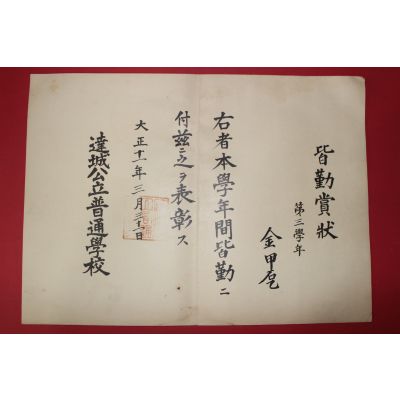 皆勤賞狀
第三學年
金甲
右者本學年間皆勤ニ
付茲ニ之ヲ表彰ス
大正十一年三月三十一日
達城公立普通學校